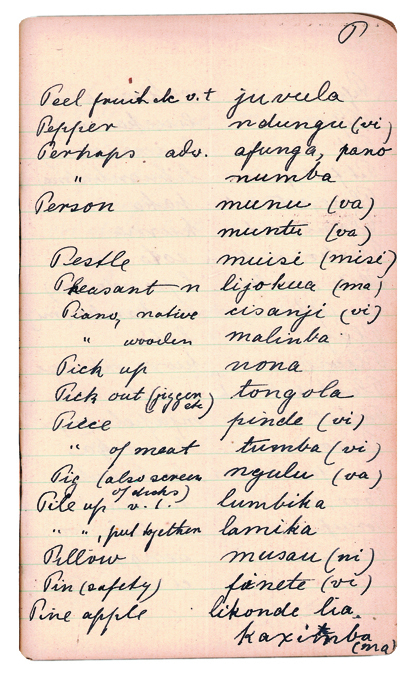 P
Peel fruit etc v.t juvula
Pepper ndungu (vi)
Perhaps adv. afunga, pano
" numba
Person munu (va)
muntu (va)
Pestle muisi (misi)
Pheasant n lijokua (ma)
Piano, native cisanji (vi)
" wooden malimba
Pick up nona
Pick out (jiggers etc) tongola
Piece pinde (vi)
" of meat tumba (vi)
Pig (also screen of ducks) ngulu (va)
Pile up v.t. lumbika
" ", put together lamika
Pillow musau (ni)
Pin (safety) finete (vi)
Pine apple likonde lia
kaximba (ma)